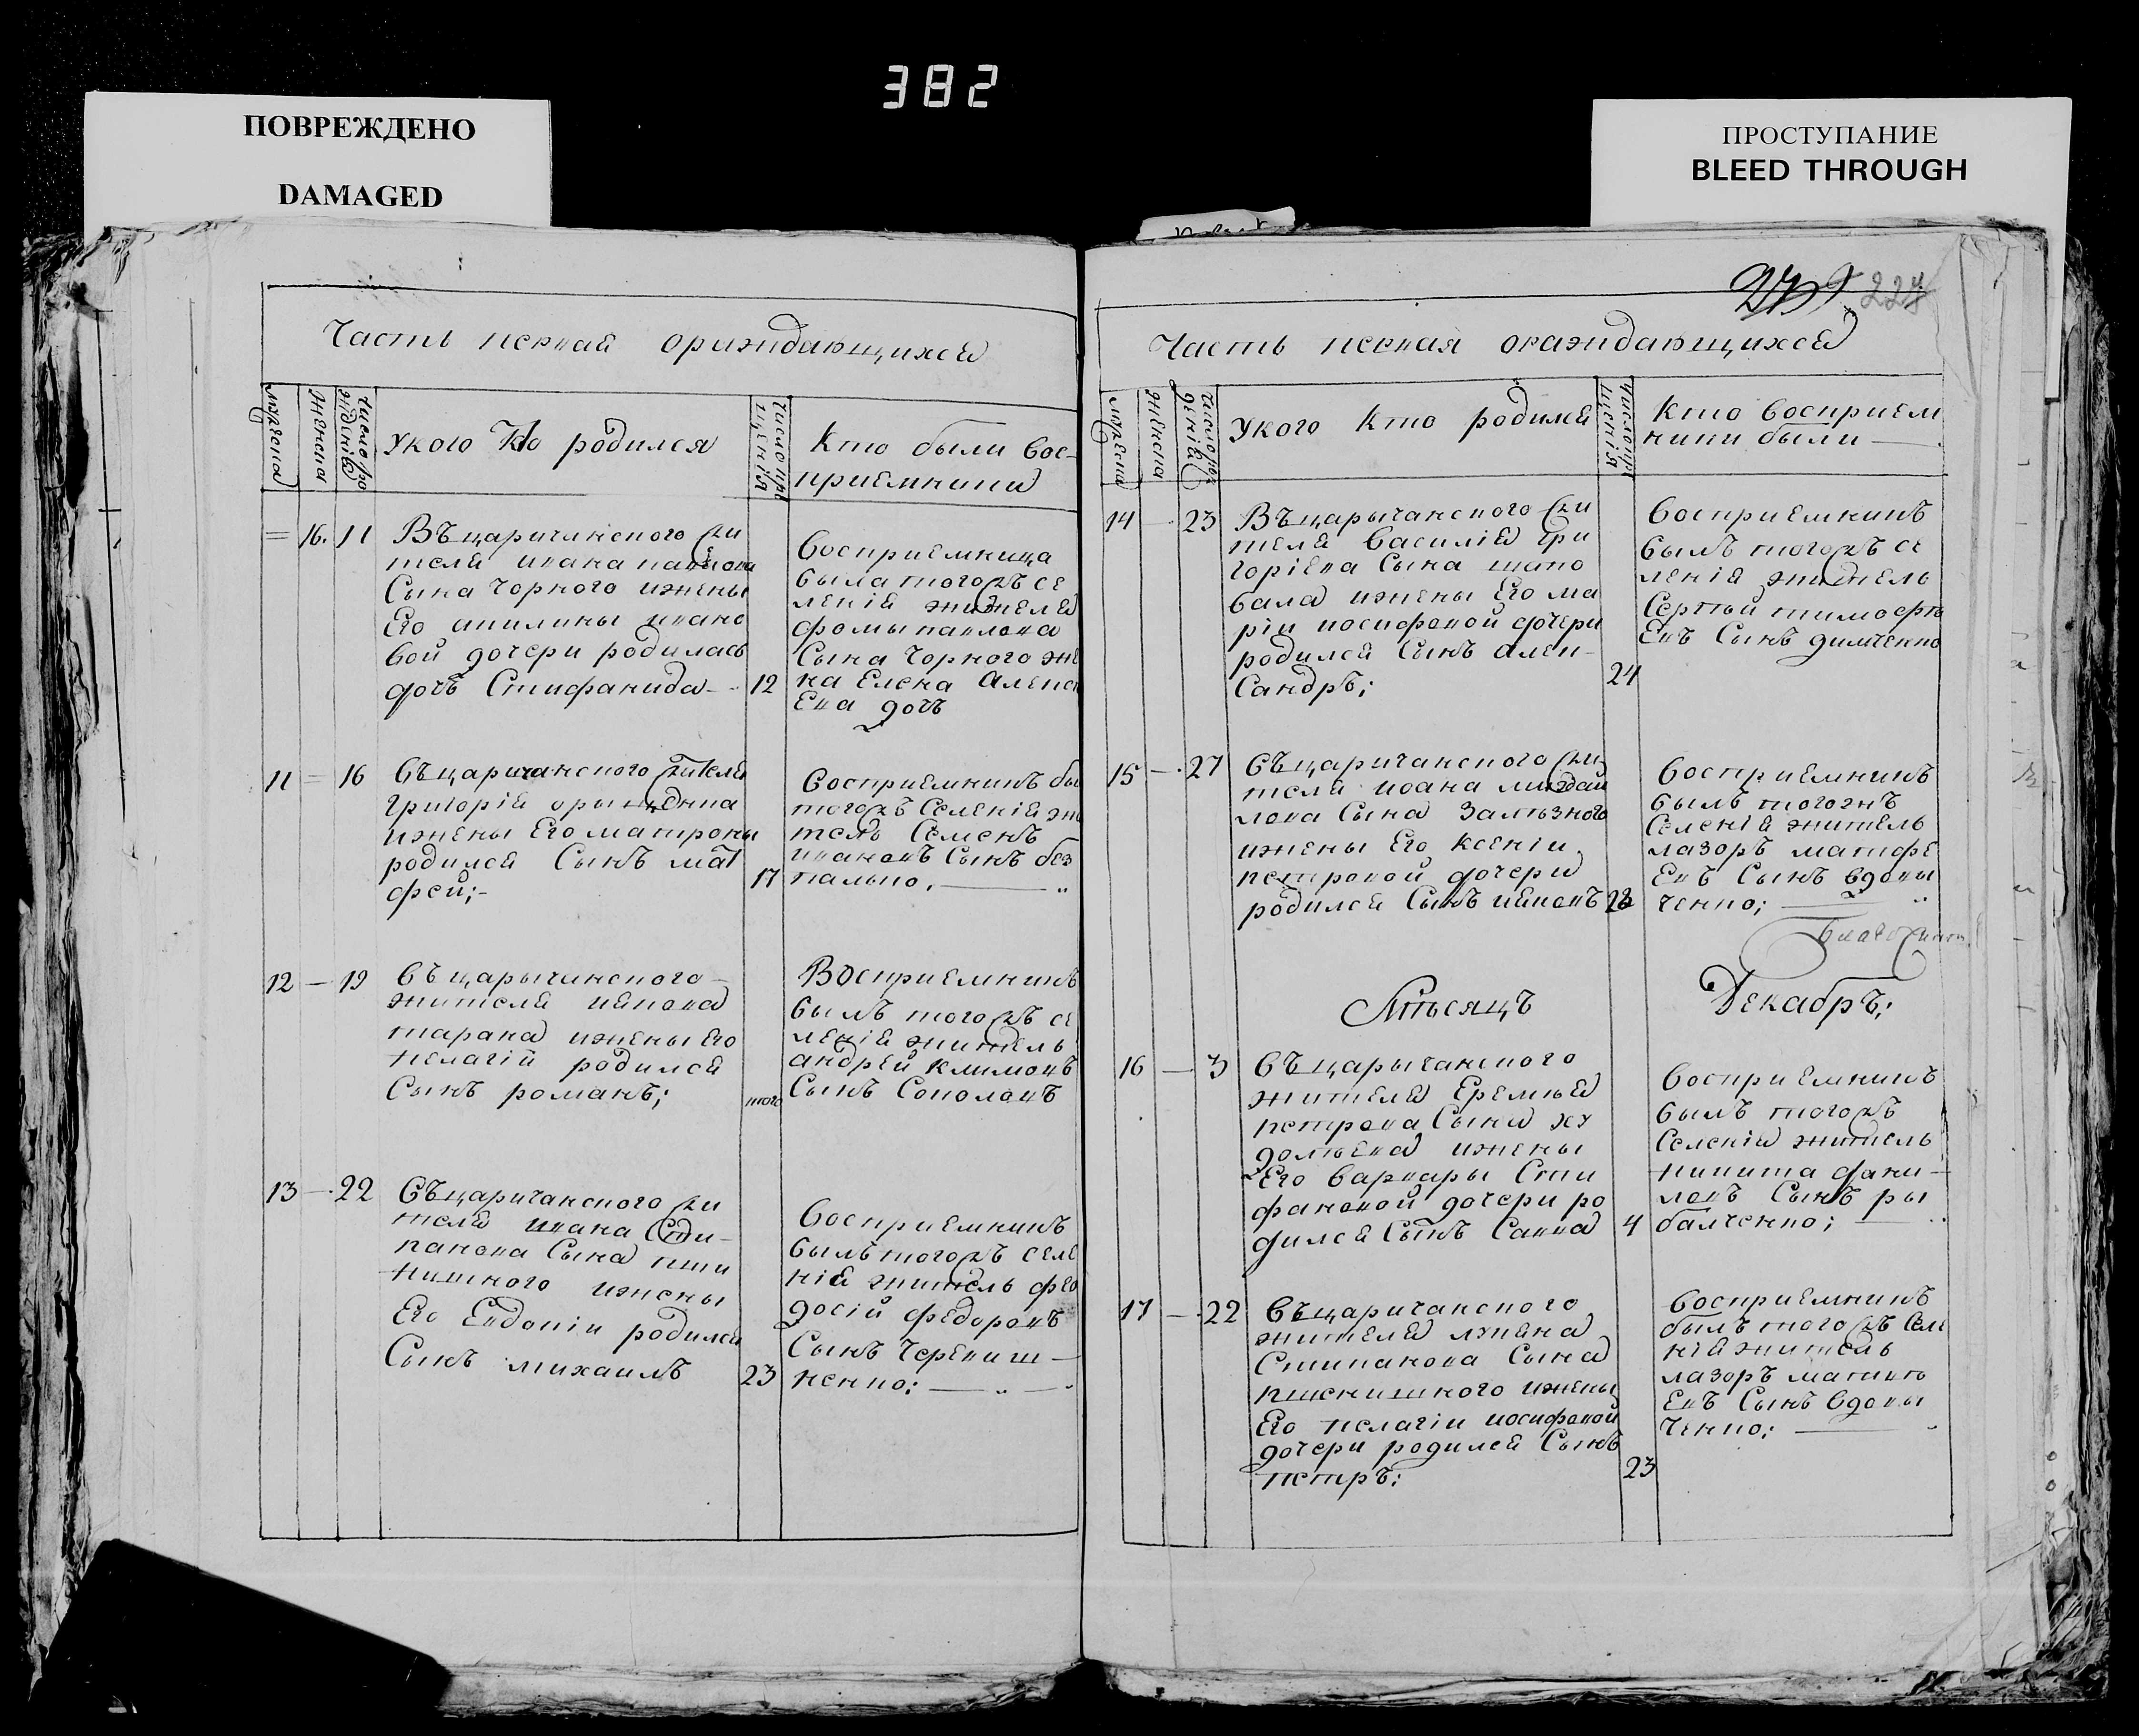 382
ПОВРЕЖДЕНО
DAMAGED
ПРОСТУПАНИЕ
BLEED THROUGH
227
Часть первай ораждающихся
мужеска
женска
число ро
жденія
Укого Кто родился
число кре
щенія
Кто были вос-
приемники
= 16. 11
Въ царичанского жи
теля ивана павлова
Сына Чорного ижены
Его акилины ивано
вой дочери родилась
дочь Стифанида 12
восприемница
была тогожъ се
ленія жителя
фомы павлова
Сына Чорного же
на Елена Алексі
Ева дочь
11 = 16
въ царичанского жителя
григорія
ижены Его матроны
родился Сынъ мат
фей;- 17
восприемникъ бы
тогожъ Селенія жи
тель Семенъ
ивановъ Сынъ без
пально.
12 — 19
въ царычинского
жителя якова
тарана ижены Его
пелагіи родился
Сынъ романъ; того
Восприемникъ
былъ тогожъ се
ленія житель
андрей климовъ
Сынъ Соколовъ
13 — 22
въ царичанского жи
теля ивана Сти-
панова Сына пши
нишного ижены
Его Евдокіи родился
Сынъ михаилъ 23
восприемникъ
былъ тогожъ селе
нія житель фео
досій федоровъ
Сынъ Черевиш-
ненко;
Часть первая ораждающихся
мужеска
женска
число рож
денія
Укого Кто родился
число кре
щенія
Кто восприем
ники были
14 - 23
Въ царычанского жи
теля василія гри
горіева Сына шапо
вала ижены Его ма
ріи иосифовой дочери
родился Сынъ Алек-
Сандръ; 24
восприемникъ
былъ тогожъ се
ленія житель
Сергѣй тимофѣ
Евъ Сынъ димченко
15 — 27
въ царичанского жи
теля иоана михай
лова Сына Залѣзного
ижены Его ксеніи
петровой дочери
родился Сынъ иаковъ 28
восприемникъ
былъ тогожъ
Селенія житель
лазоръ матфе
Евъ Сынъ вдови
ченко;
Мѣсяцъ Декабръ;
16 — 3
въ царычанского
жителя Еремѣя
петрова Сына ху
долѣева ижены
Его варвары Сти
фановой дочери ро
дился Сынъ Савва 4
восприемникъ
былъ тогожъ
Селенія житель
никита дани-
ловъ Сынъ ры
балченко;
17 — 22
въ царичанского
жителя лукяна
Стипанова Сына
пшенишного ижены
Его пелагіи иосифовой
дочери родился Сынъ
петръ; 23
восприемникъ
былъ тогожъ Селе
нія житель
лазоръ матвѣ
Евъ Сынъ вдови
ченко;